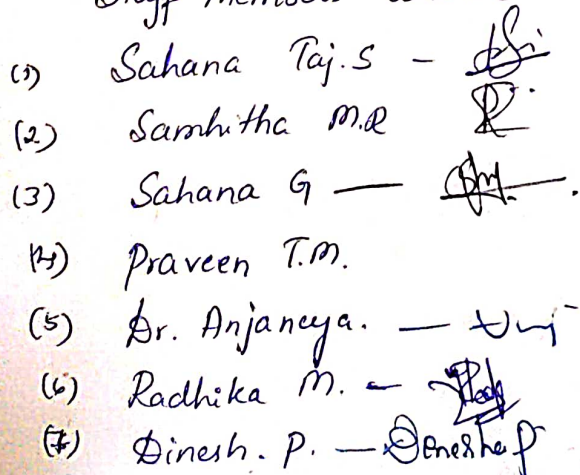 Staff Members
(1) Sahana Taj.S -
(2) Samhitha M.R
(3) Sahana G —
(4) Praveen T.M.
(5) Dr. Anjaneya. —
(6) Radhika M. -
(7) Dinesh. P. — Dinesha P